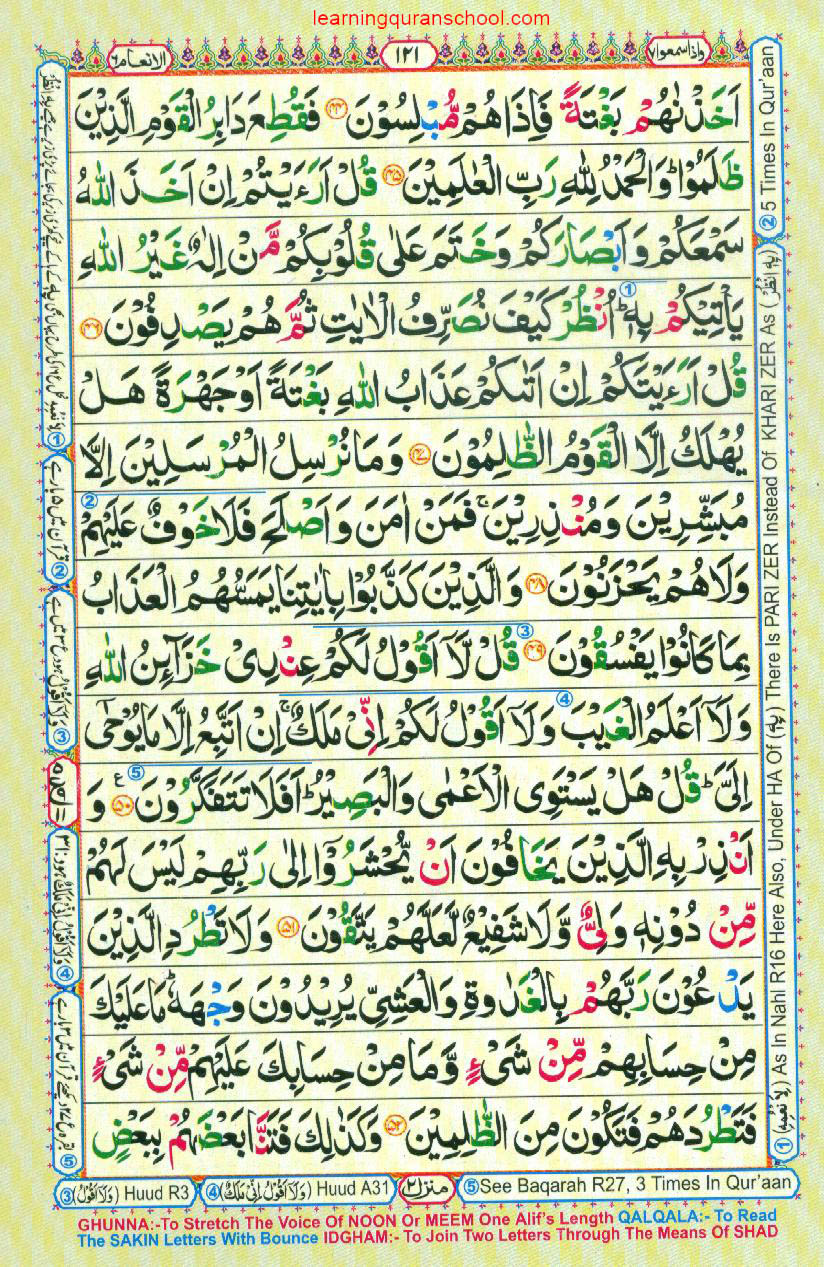 learningquranschool.com
واذاسمعوا٧
١٢١
الانعام٦
اَخَذْنٰهُمْ بَغْتَةً فَاِذَا هُمْ مُّبْلِسُوْنَ ۴۴ فَقُطِعَ دَابِرُ الْقَوْمِ الَّذِيْنَ
ظَلَمُوْا ؕ وَالْحَمْدُ لِلّٰهِ رَبِّ الْعٰلَمِيْنَ ۴۵ قُلْ اَرَءَيْتُمْ اِنْ اَخَذَ اللّٰهُ
سَمْعَكُمْ وَ اَبْصَارَكُمْ وَخَتَمَ عَلٰى قُلُوْبِكُمْ مَّنْ اِلٰهٌ غَيْرُ اللّٰهِ
يَاْتِيْكُمْ بِهٖ ؕ اُنْظُرْ كَيْفَ نُصَرِّفُ الْاٰيٰتِ ثُمَّ هُمْ يَصْدِفُوْنَ ۴۶
قُلْ اَرَءَيْتَكُمْ اِنْ اَتٰىكُمْ عَذَابُ اللّٰهِ بَغْتَةً اَوْ جَهْرَةً هَلْ
يُهْلَكُ اِلَّا الْقَوْمُ الظّٰلِمُوْنَ ۴۷ وَمَا نُرْسِلُ الْمُرْسَلِيْنَ اِلَّا
مُبَشِّرِيْنَ وَمُنْذِرِيْنَ ۚ فَمَنْ اٰمَنَ وَ اَصْلَحَ فَلَا خَوْفٌ عَلَيْهِمْ
وَلَا هُمْ يَحْزَنُوْنَ ۴۸ وَ الَّذِيْنَ كَذَّبُوْا بِاٰيٰتِنَا يَمَسُّهُمُ الْعَذَابُ
بِمَا كَانُوْا يَفْسُقُوْنَ ۴۹ قُلْ لَّاۤ اَقُوْلُ لَكُمْ عِنْدِىْ خَزَآئِنُ اللّٰهِ
وَلَاۤ اَعْلَمُ الْغَيْبَ وَلَاۤ اَقُوْلُ لَكُمْ اِنِّىْ مَلَكٌ ۚ اِنْ اَتَّبِعُ اِلَّا مَا يُوْحٰٓى
اِلَىَّ ؕ قُلْ هَلْ يَسْتَوِى الْاَعْمٰى وَالْبَصِيْرُ ؕ اَفَلَا تَتَفَكَّرُوْنَ ۵۰ ع وَ
اَنْذِرْ بِهِ الَّذِيْنَ يَخَافُوْنَ اَنْ يُّحْشَرُوْۤا اِلٰى رَبِّهِمْ لَيْسَ لَهُمْ
مِّنْ دُوْنِهٖ وَلِىٌّ وَّلَا شَفِيْعٌ لَّعَلَّهُمْ يَتَّقُوْنَ ۵۱ وَلَا تَطْرُدِ الَّذِيْنَ
يَدْعُوْنَ رَبَّهُمْ بِالْغَدٰوةِ وَالْعَشِىِّ يُرِيْدُوْنَ وَجْهَهٗ ؕ مَا عَلَيْكَ
مِنْ حِسَابِهِمْ مِّنْ شَىْءٍ وَّمَا مِنْ حِسَابِكَ عَلَيْهِمْ مِّنْ شَىْءٍ
فَتَطْرُدَهُمْ فَتَكُوْنَ مِنَ الظّٰلِمِيْنَ ۵۲ وَكَذٰلِكَ فَتَنَّا بَعْضَهُمْ بِبَعْضٍ
① (لَا نُعْيِدُ) As In Nahl R16 Here Also, Under HA Of (بِهٖ) There Is PARI ZER Instead Of KHARI ZER As (بِهِ انْظُرْ) ② 5 Times In Qur'aan
③ (وَلَا اَقُوْلُ) Huud R3
④ (وَلَا اَقُوْلُ اِنِّىْ مَلَكٌ) Huud A31
منزل٢
⑤ See Baqarah R27, 3 Times In Qur'aan
GHUNNA:-To Stretch The Voice Of NOON Or MEEM One Alif's Length QALQALA:- To Read
The SAKIN Letters With Bounce IDGHAM:- To Join Two Letters Through The Means Of SHAD